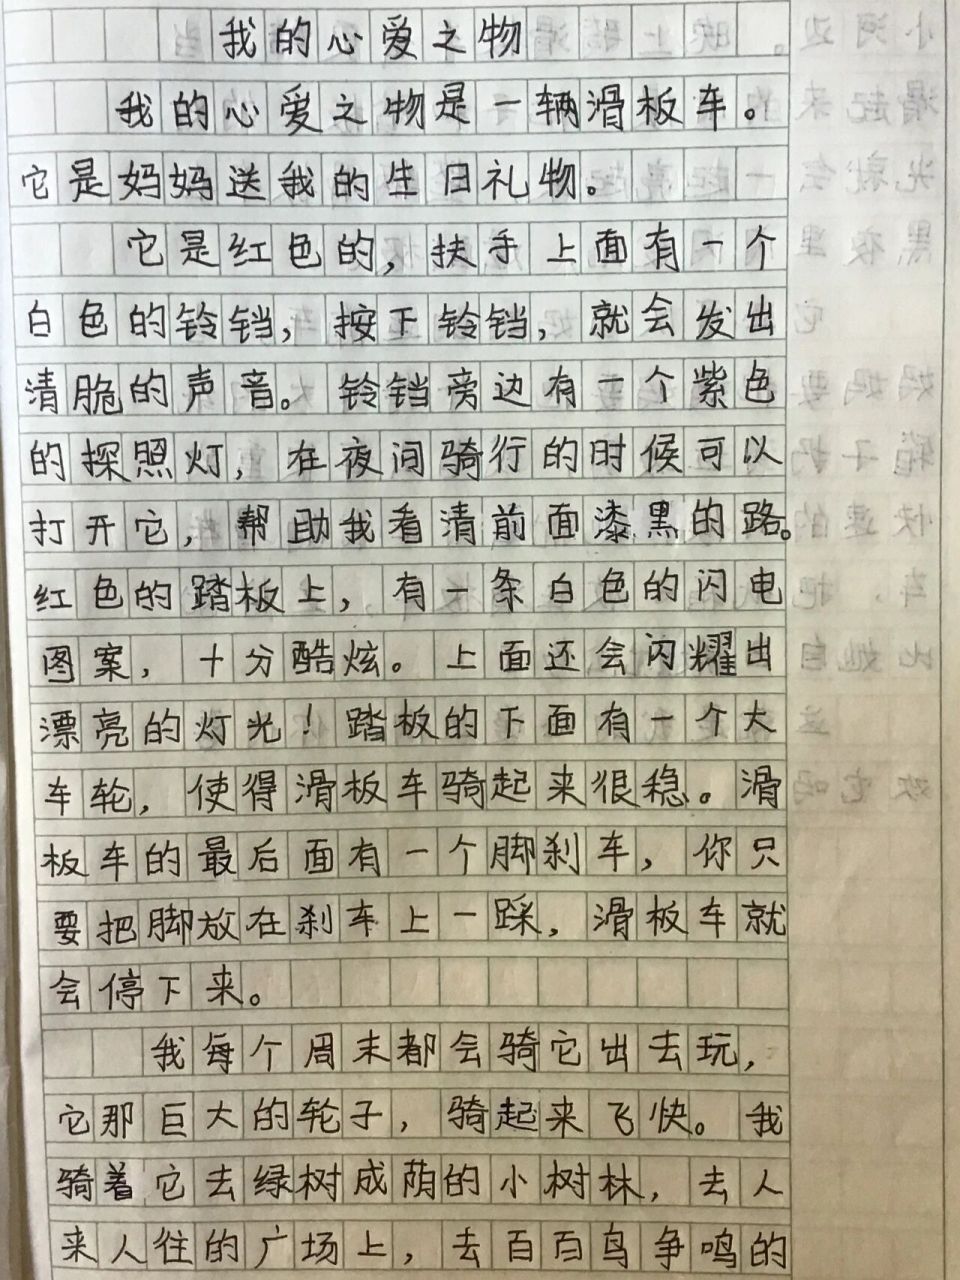 我的心爱之物
我的心爱之物是一辆滑板车。
它是妈妈送我的生日礼物。
它是红色的，扶手上面有一个
白色的铃铛，按下铃铛，就会发出
清脆的声音。铃铛旁边有一个紫色
的探照灯，在夜间骑行的时候可以
打开它，帮助我看清前面漆黑的路。
红色的踏板上，有一条白色的闪电
图案，十分酷炫。上面还会闪耀出
漂亮的灯光！踏板的下面有一个大
车轮，使得滑板车骑起来很稳。滑
板车的最后面有一个脚刹车，你只
要把脚放在刹车上一踩，滑板车就
会停下来。
我每个周末都会骑它出去玩，
它那巨大的轮子，骑起来飞快。我
骑着它去绿树成荫的小树林，去人
来人往的广场上，去百百鸟争鸣的